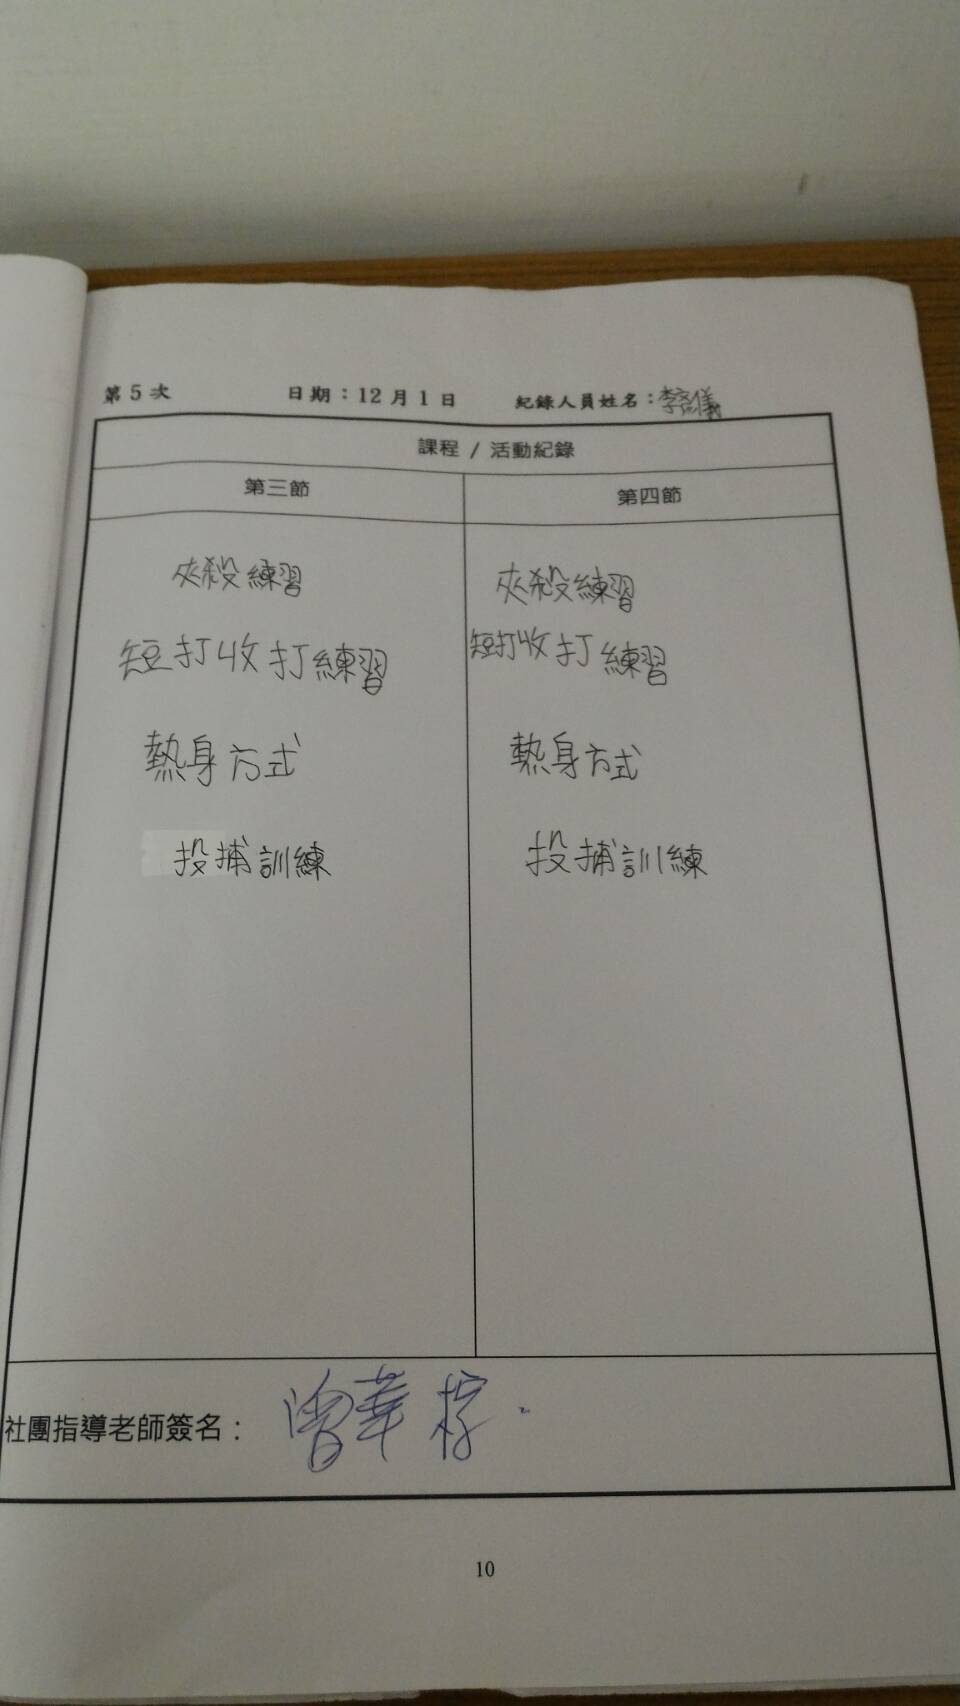 第 5 次 日期：12 月 1 日 紀錄人員姓名：李
課程 / 活動紀錄
第三節 第四節
夾殺練習 夾殺練習
短打收打練習 短打收打練習
熱身方式 熱身方式
投捕訓練 投捕訓練
社團指導老師簽名： 曾華
10